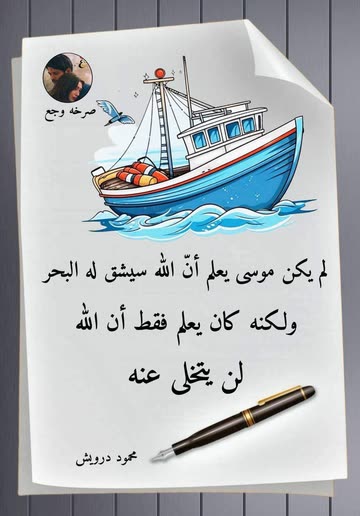 صرخه وجع
لم يكن موسى يعلم أنّ الله سيشق له البحر
ولكنه كان يعلم فقط أن الله
لن يتخلى عنه
محمود درويش